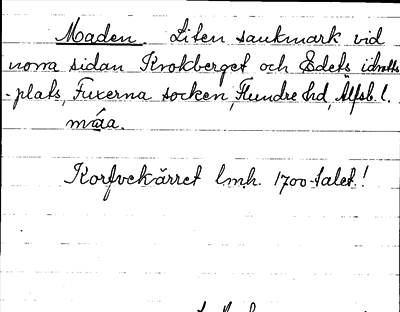 Maden. Liten sankmark vid
norra sidan Krokberget och Edets idrotts
-plats, Fuxerna socken, Flundre hd, Älfsb. l.
måa.
Korfvekärret lmh. 1700-talet!